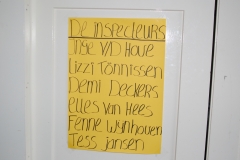 De inspecteurs
Inge v/d Hove
Lizzi Tönnissen
Demi Deckers
elles van Hees
Fenne Wijnhoven
Tess jansen